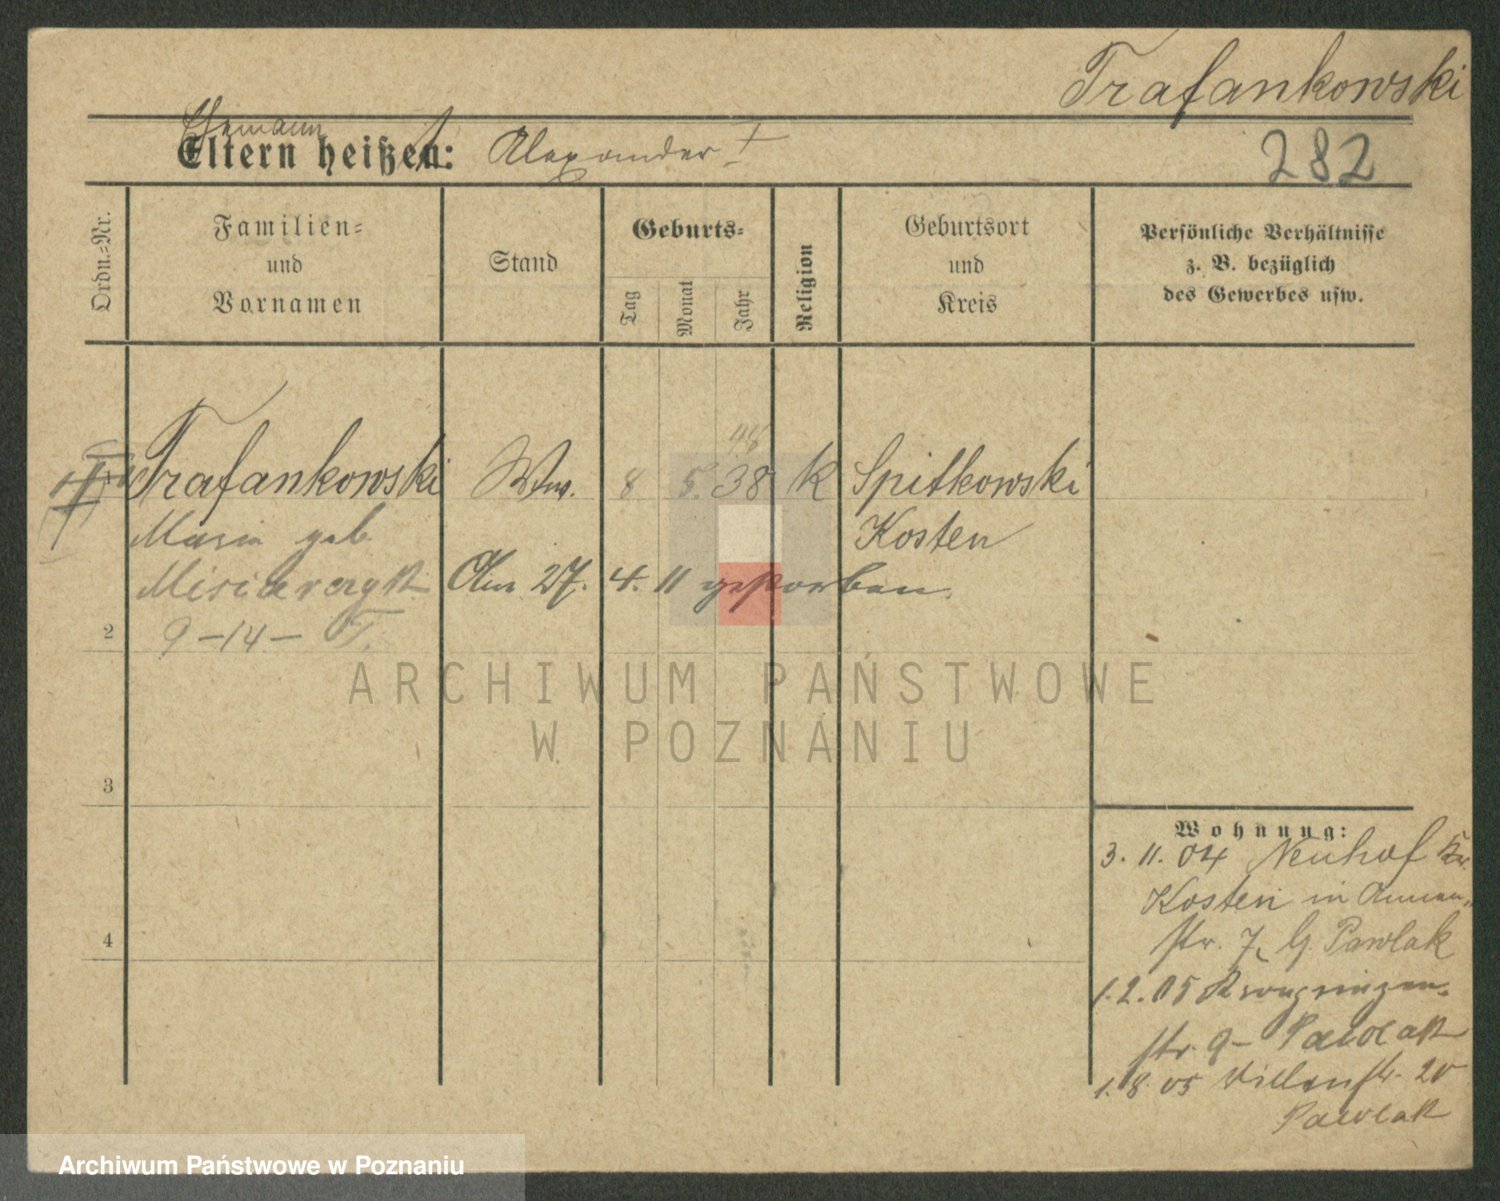 Trafankowski
Ehemann
Eltern heißen: Alexander †
282
Ordn.-Nr.
Familien-
und
Vornamen
Stand
Geburts-
Tag
Monat
Jahr
Religion
Geburtsort
und
Kreis
Persönliche Verhältnisse
z. B. bezüglich
des Gewerbes usw.
48
Trafankowski Ww. 8 5. 38 k Spitkowski
Maria geb. Kosten
Am 27. 4. 11 gestorben.
2 9-14- T.
ARCHIWUM PAŃSTWOWE
W POZNANIU
3
4
Wohnung:
3. 11. 04 Neuhof Kr.
Kosten in
str. 7, b. Pawlak
1. 2. 05
str. 9- Pawlak
1. 8. 05 str. 20
Pawlak
Archiwum Państwowe w Poznaniu